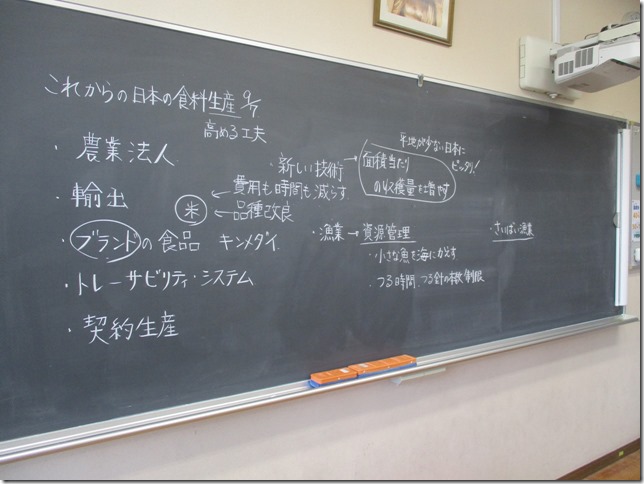 これからの日本の食料生産 9/7
高める工夫
・農業法人
・輸出
・ブランドの食品 キンメダイ
・トレーサビリティ・システム
・契約生産
・新しい技術→
面積当たり
の収穫量を増やす
平地が少ない日本に
ピッタリ!
米
←費用も時間も減らす
←品種改良
・漁業→資源管理
・小さな魚を海にかえす
・つる時間、つる針の本数制限
・さいばい漁業